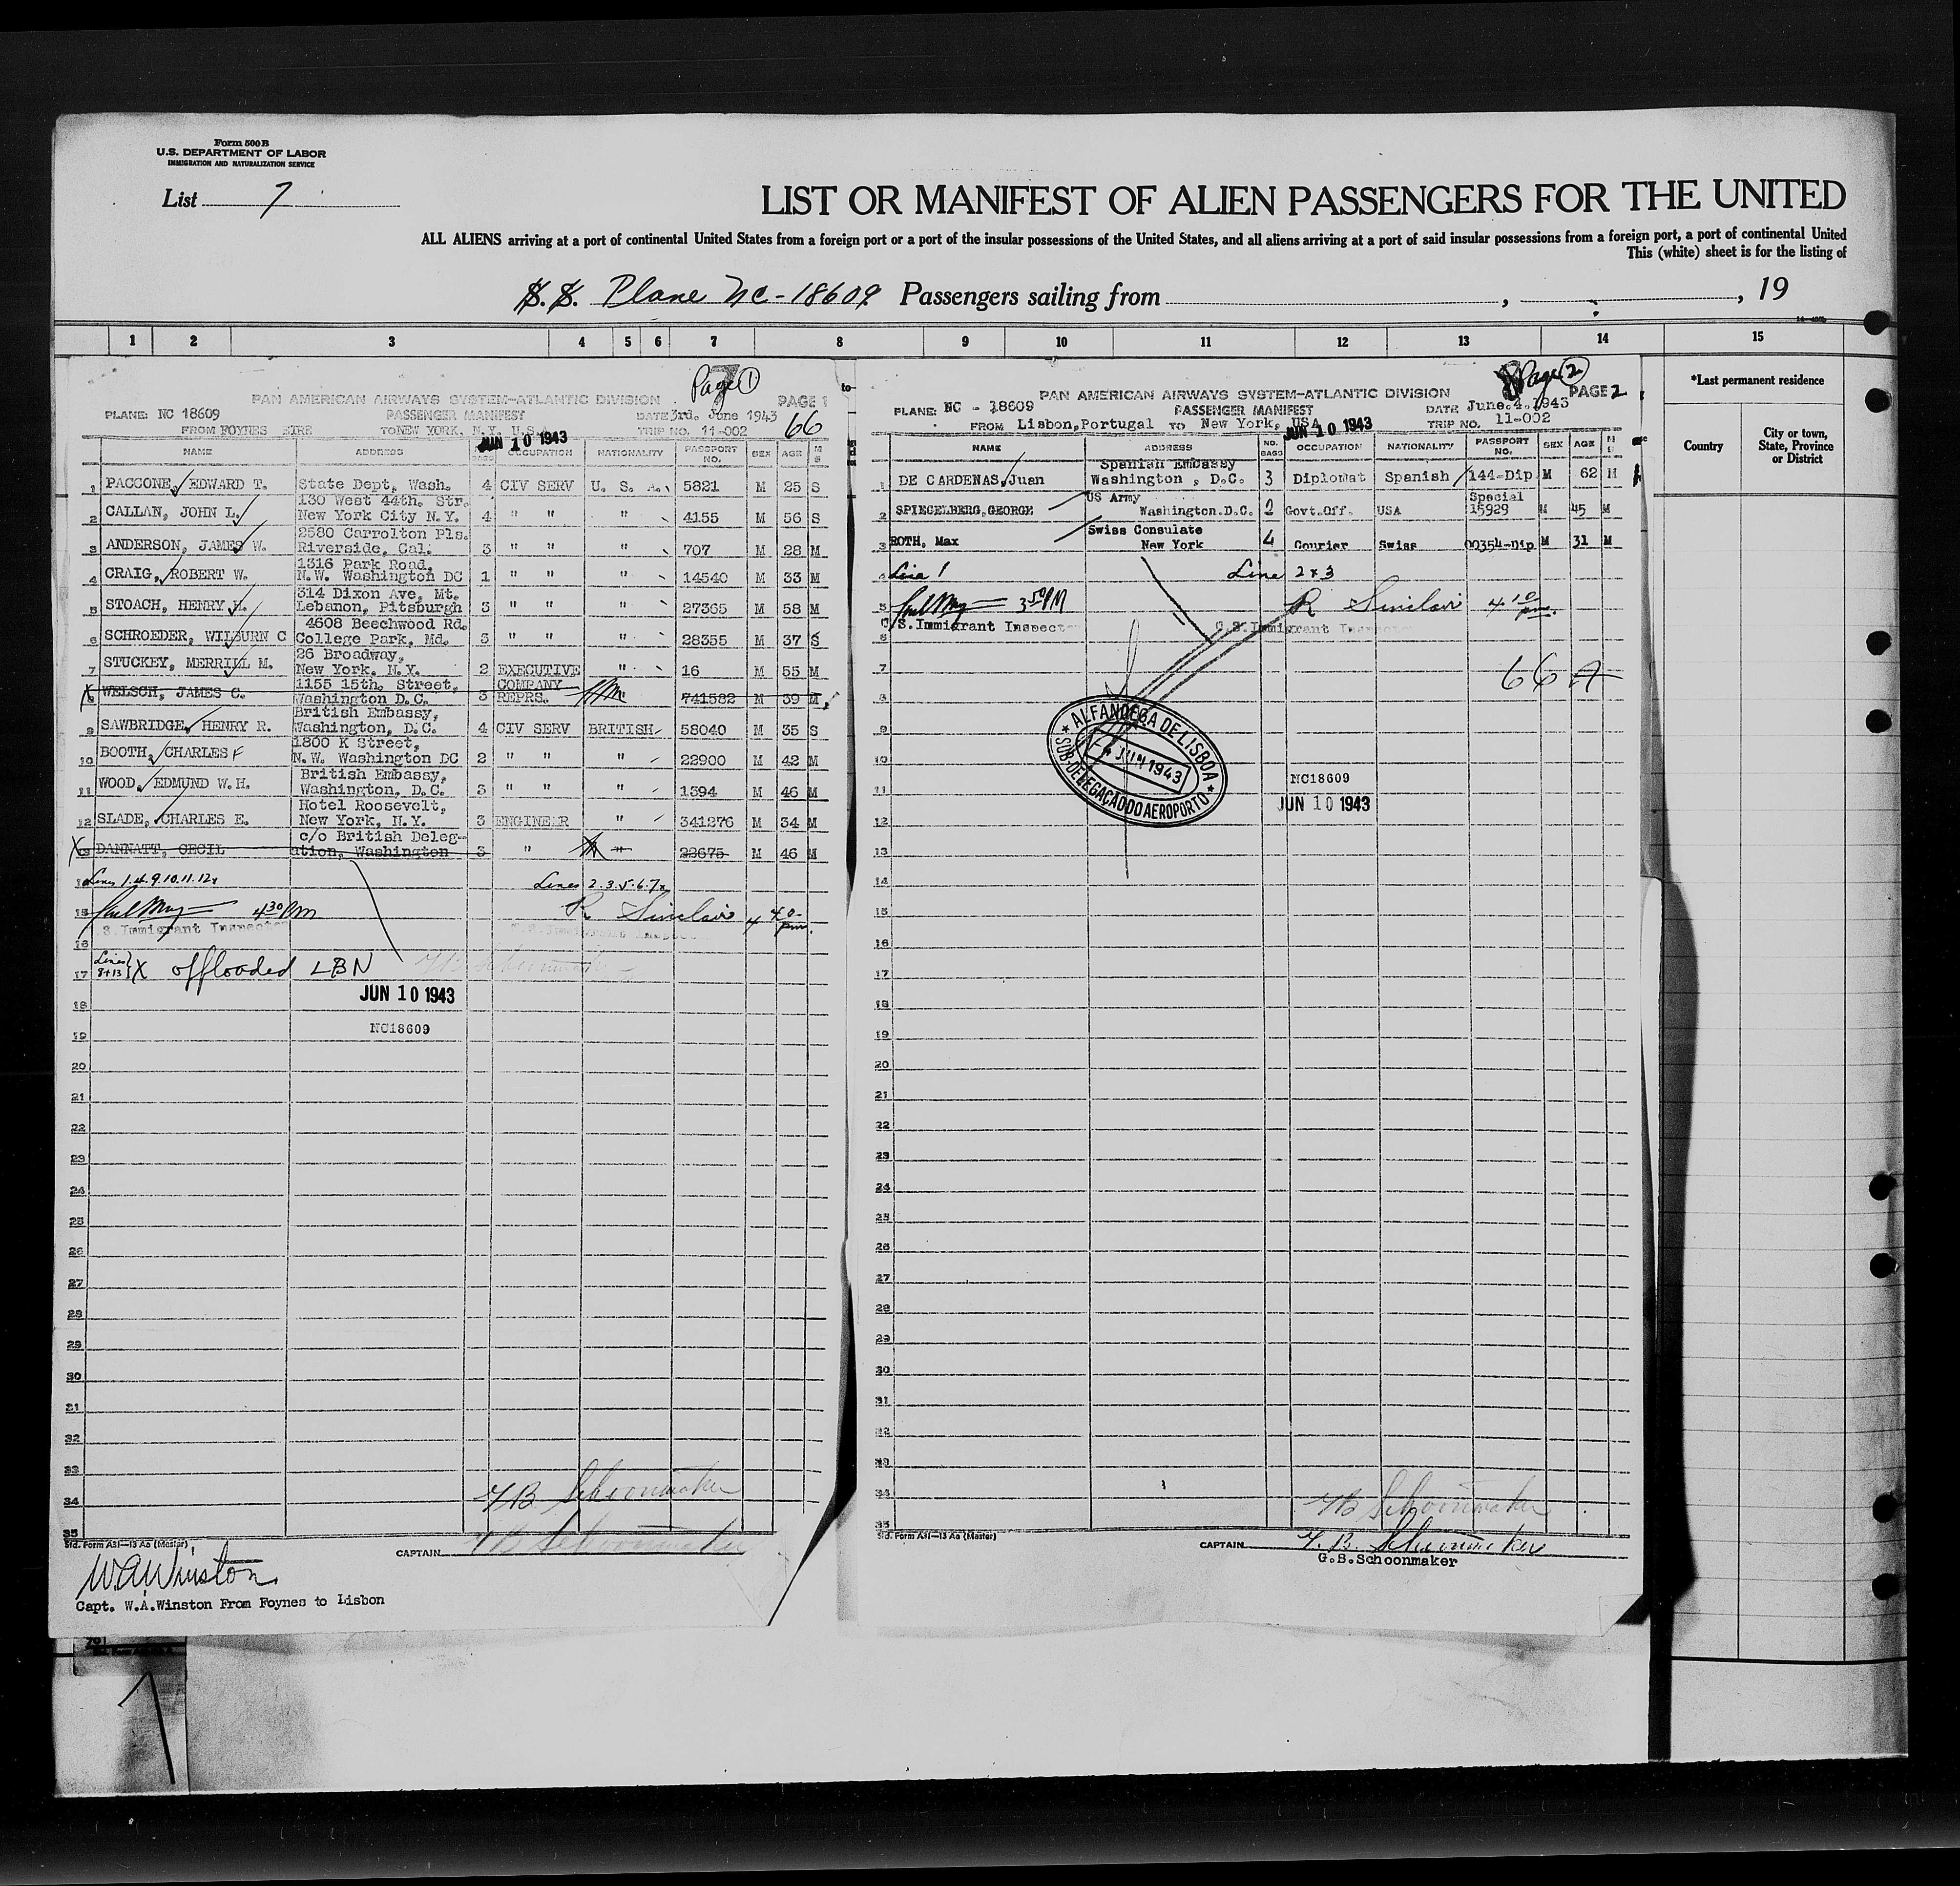 Form 500B
U.S. DEPARTMENT OF LABOR
IMMIGRATION AND NATURALIZATION SERVICE
List 7
LIST OR MANIFEST OF ALIEN PASSENGERS FOR THE UNITED
ALL ALIENS arriving at a port of continental United States from a foreign port or a port of the insular possessions of the United States, and all aliens arriving at a port of said insular possessions from a foreign port, a port of continental United
This (white) sheet is for the listing of
S.S. Plane NC-18609 Passengers sailing from , , 19
1 2 3 4 5 6 7 8 9 10 11 12 13 14 15
*Last permanent residence
Country
City or town, State, Province or District
Page 1
PAN AMERICAN AIRWAYS SYSTEM-ATLANTIC DIVISION PAGE 1
PLANE: NC 18609 PASSENGER MANIFEST DATE 3rd. June 1943 66
FROM FOYNES EIRE TO NEW YORK, N.Y. U.S.A. TRIP NO. 11-002
JUN 10 1943
NAME ADDRESS NO. BAGS OCCUPATION NATIONALITY PASSPORT NO. SEX AGE M S
1 PACCONE, EDWARD T. State Dept, Wash. 4 CIV SERV U. S. A. 5821 M 25 S
2 CALLAN, JOHN L. 130 West 44th. Str. New York City N.Y. 4 " " " 4155 M 56 S
3 ANDERSON, JAMES W. 2580 Carrolton Pls. Riverside, Cal. 3 " " " 707 M 28 M
4 CRAIG, ROBERT W. 1316 Park Road, N.W. Washington DC 1 " " " 14540 M 33 M
5 STOACH, HENRY H. 314 Dixon Ave, Mt. Lebanon, Pitsburgh 3 " " " 27365 M 58 M
6 SCHROEDER, WILBURN C 4608 Beechwood Rd. College Park, Md. 3 " " " 28355 M 37 S
7 STUCKEY, MERRILL M. 26 Broadway, New York, N.Y. 2 EXECUTIVE " 16 M 55 M
X 8 WELSCH, JAMES C. 1155 15th. Street, Washington D.C. 3 COMPANY REPRS. 741582 M 39 M
9 SAWBRIDGE, HENRY R. British Embassy, Washington, D.C. 4 CIV SERV BRITISH 58040 M 35 S
10 BOOTH, CHARLES F 1800 K Street, N.W. Washington DC 2 " " " 22900 M 42 M
11 WOOD, EDMUND W.H. British Embassy, Washington, D.C. 3 " " " 1394 M 46 M
12 SLADE, CHARLES E. Hotel Roosevelt, New York, N.Y. 3 ENGINEER " 341276 M 34 M
X 13 DANNATT, CECIL c/o British Delegation, Washington 3 " " 22675 M 46 M
14 Lines 1.4.9.10.11.12x Lines 2.3.5.6.7x
15 4 30 PM R Sinclair 4 40 pm.
.S. Immigrant Inspector
16
17 Lines 8+13} X offloaded LBN
JUN 10 1943
18
19 NC18609
20
21
22
23
24
25
26
27
28
29
30
31
32
33
34
35
G B Schoonmaker
Std. Form A31-13 Aa (Master) CAPTAIN G B Schoonmaker
W.A.Winston
Capt. W.A.Winston From Foynes to Lisbon
Page 2
PAN AMERICAN AIRWAYS SYSTEM-ATLANTIC DIVISION PAGE 2
PLANE: NC - 18609 PASSENGER MANIFEST DATE June.4.1943
FROM Lisbon,Portugal TO New York, USA TRIP NO. 11-002
JUN 10 1943
NAME ADDRESS NO. BAGS OCCUPATION NATIONALITY PASSPORT NO. SEX AGE
1 DE CARDENAS,Juan Spanish Embassy Washington , D.C. 3 Diplomat Spanish 144-Dip M 62 M
2 SPIEGELBERG,GEORGE US Army Washington.D.C. 2 Govt.Off. USA Special 15929 M 45 M
3 ROTH, Max Swiss Consulate New York 4 Courier Swiss 00354-Dip M 31 M
4 Line 1 Line 2 x 3
5 3 50 PM R Sinclair 4 10 pm.
U.S.Immigrant Inspect U.S.Immigrant Inspector
6
7 66 A
8
9
10
11
12
13
14
15
16
17
18
19
20
21
22
23
24
25
26
27
28
29
30
31
32
33
34
35
ALFANDEGA DE LISBOA
-4 JUN 1943
SUB-DELEGAÇÃO DO AEROPORTO
NC18609
JUN 10 1943
G B Schoonmaker
Std. Form A31-13 Aa (Master) CAPTAIN G. B. Schoonmaker
G.S.Schoonmaker